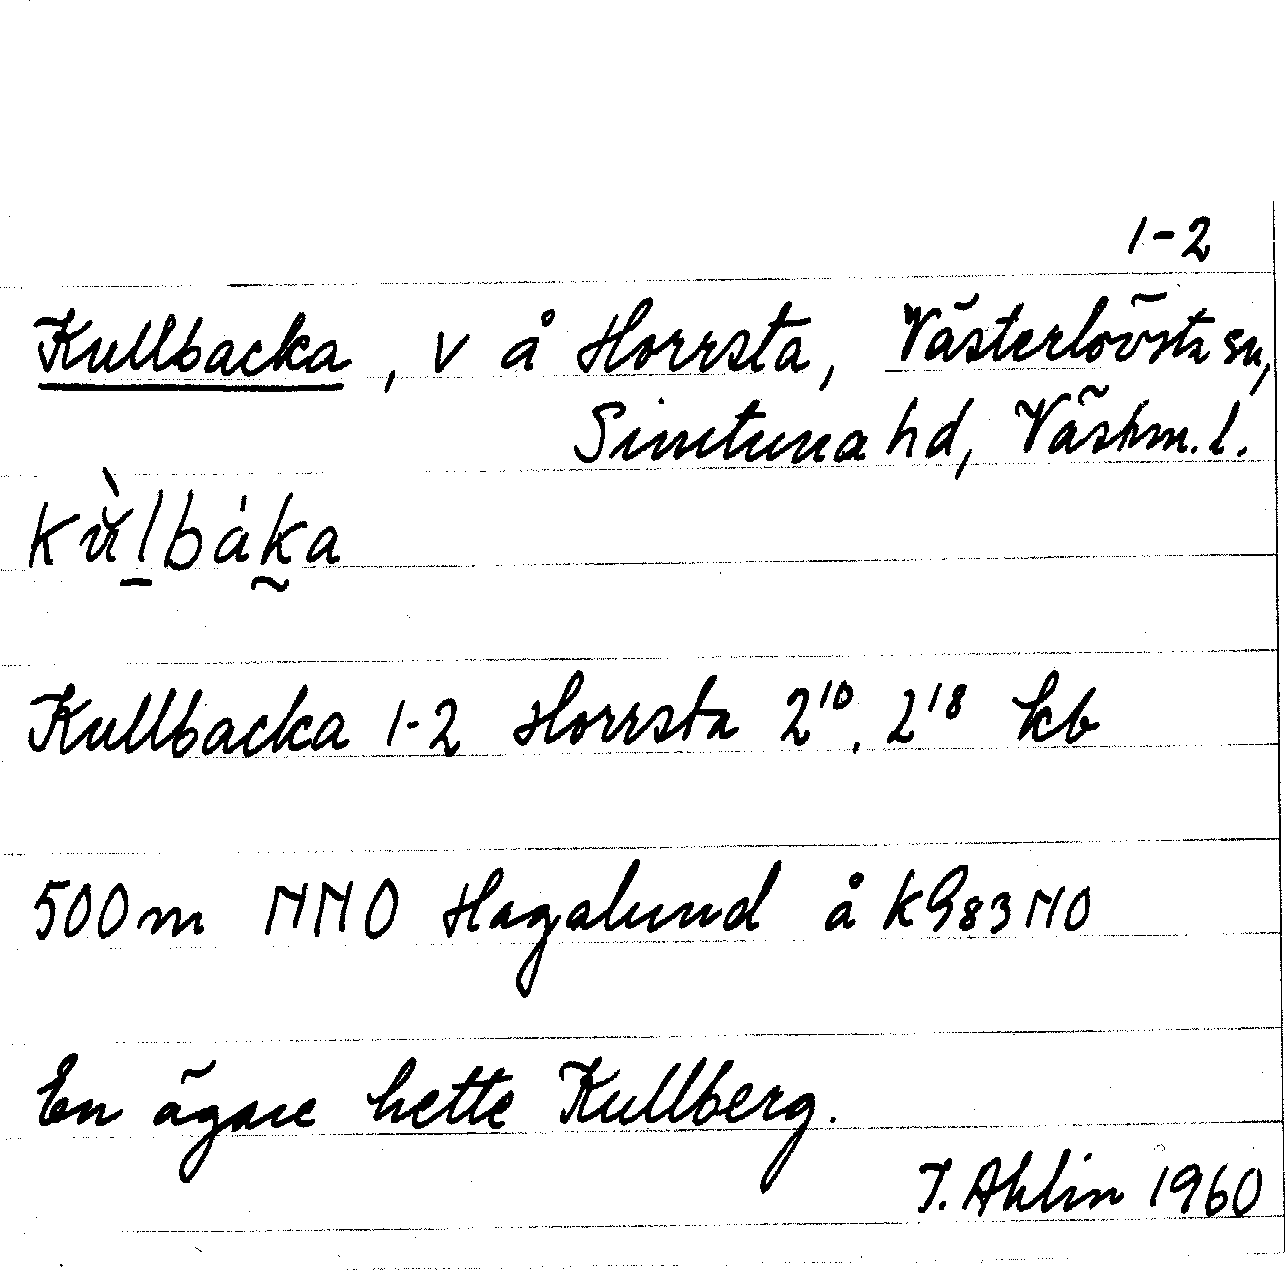 1-2
Kullbacka, v å Horrsta, Västerlövsta sn,
Simtuna hd, Västm. l.
kùl̠bák̰a
Kullbacka 1-2 Horrsta 2¹⁰, 2¹⁸ kb
500 m NNO Hagalund å k G83 NO
En ägare hette Kullberg.
I. Ahlin 1960